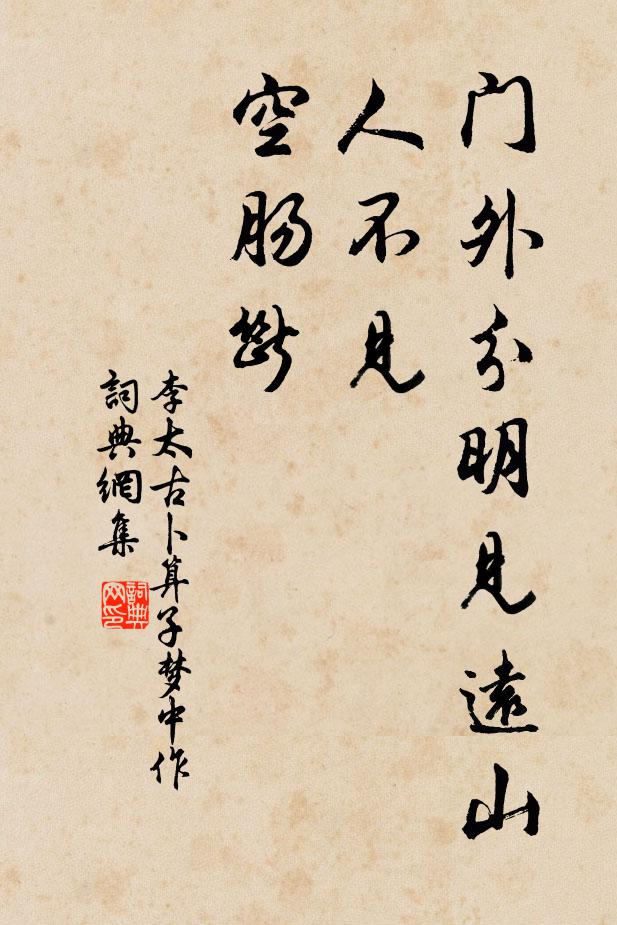 门外分明见遠山
人不见
空肠断
李太古卜算子梦中作
詞典網集
詞典网印